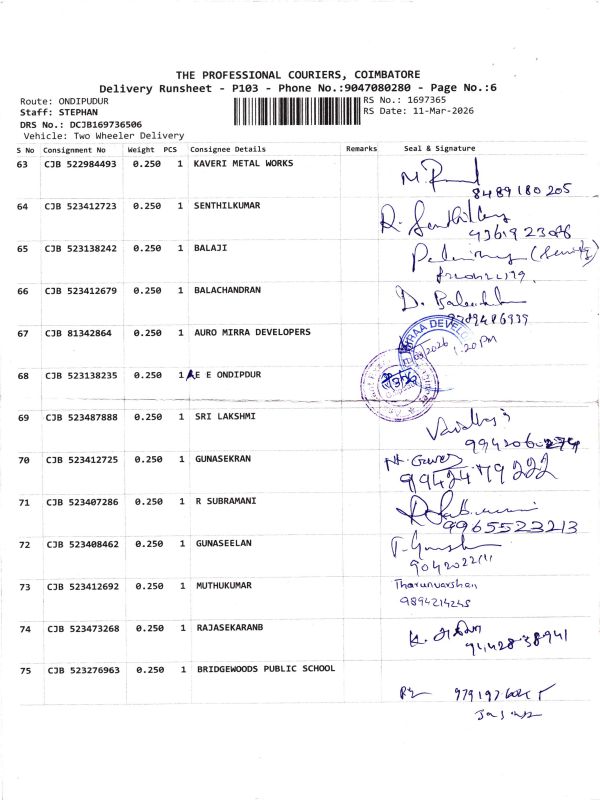 THE PROFESSIONAL COURIERS, COIMBATORE
Delivery Runsheet - P103 - Phone No.:9047080280 - Page No.:6
Route: ONDIPUDUR
RS No.: 1697365
Staff: STEPHAN
RS Date: 11-Mar-2026
DRS No.: DCJB169736506
Vehicle: Two Wheeler Delivery
S No Consignment No Weight PCS Consignee Details Remarks Seal & Signature
63 CJB 522984493 0.250 1 KAVERI METAL WORKS
8489180205
64 CJB 523412723 0.250 1 SENTHILKUMAR
65 CJB 523138242 0.250 1 BALAJI
66 CJB 523412679 0.250 1 BALACHANDRAN
9789486939
67 CJB 81342864 0.250 1 AURO MIRRA DEVELOPERS
1.20 PM
68 CJB 523138235 0.250 1 AE E ONDIPDUR
69 CJB 523487888 0.250 1 SRI LAKSHMI
70 CJB 523412725 0.250 1 GUNASEKRAN
9942479222
71 CJB 523407286 0.250 1 R SUBRAMANI
9965523213
72 CJB 523408462 0.250 1 GUNASEELAN
73 CJB 523412692 0.250 1 MUTHUKUMAR
Tharunvarshan
9894214245
74 CJB 523473268 0.250 1 RAJASEKARANB
9442838941
75 CJB 523276963 0.250 1 BRIDGEWOODS PUBLIC SCHOOL